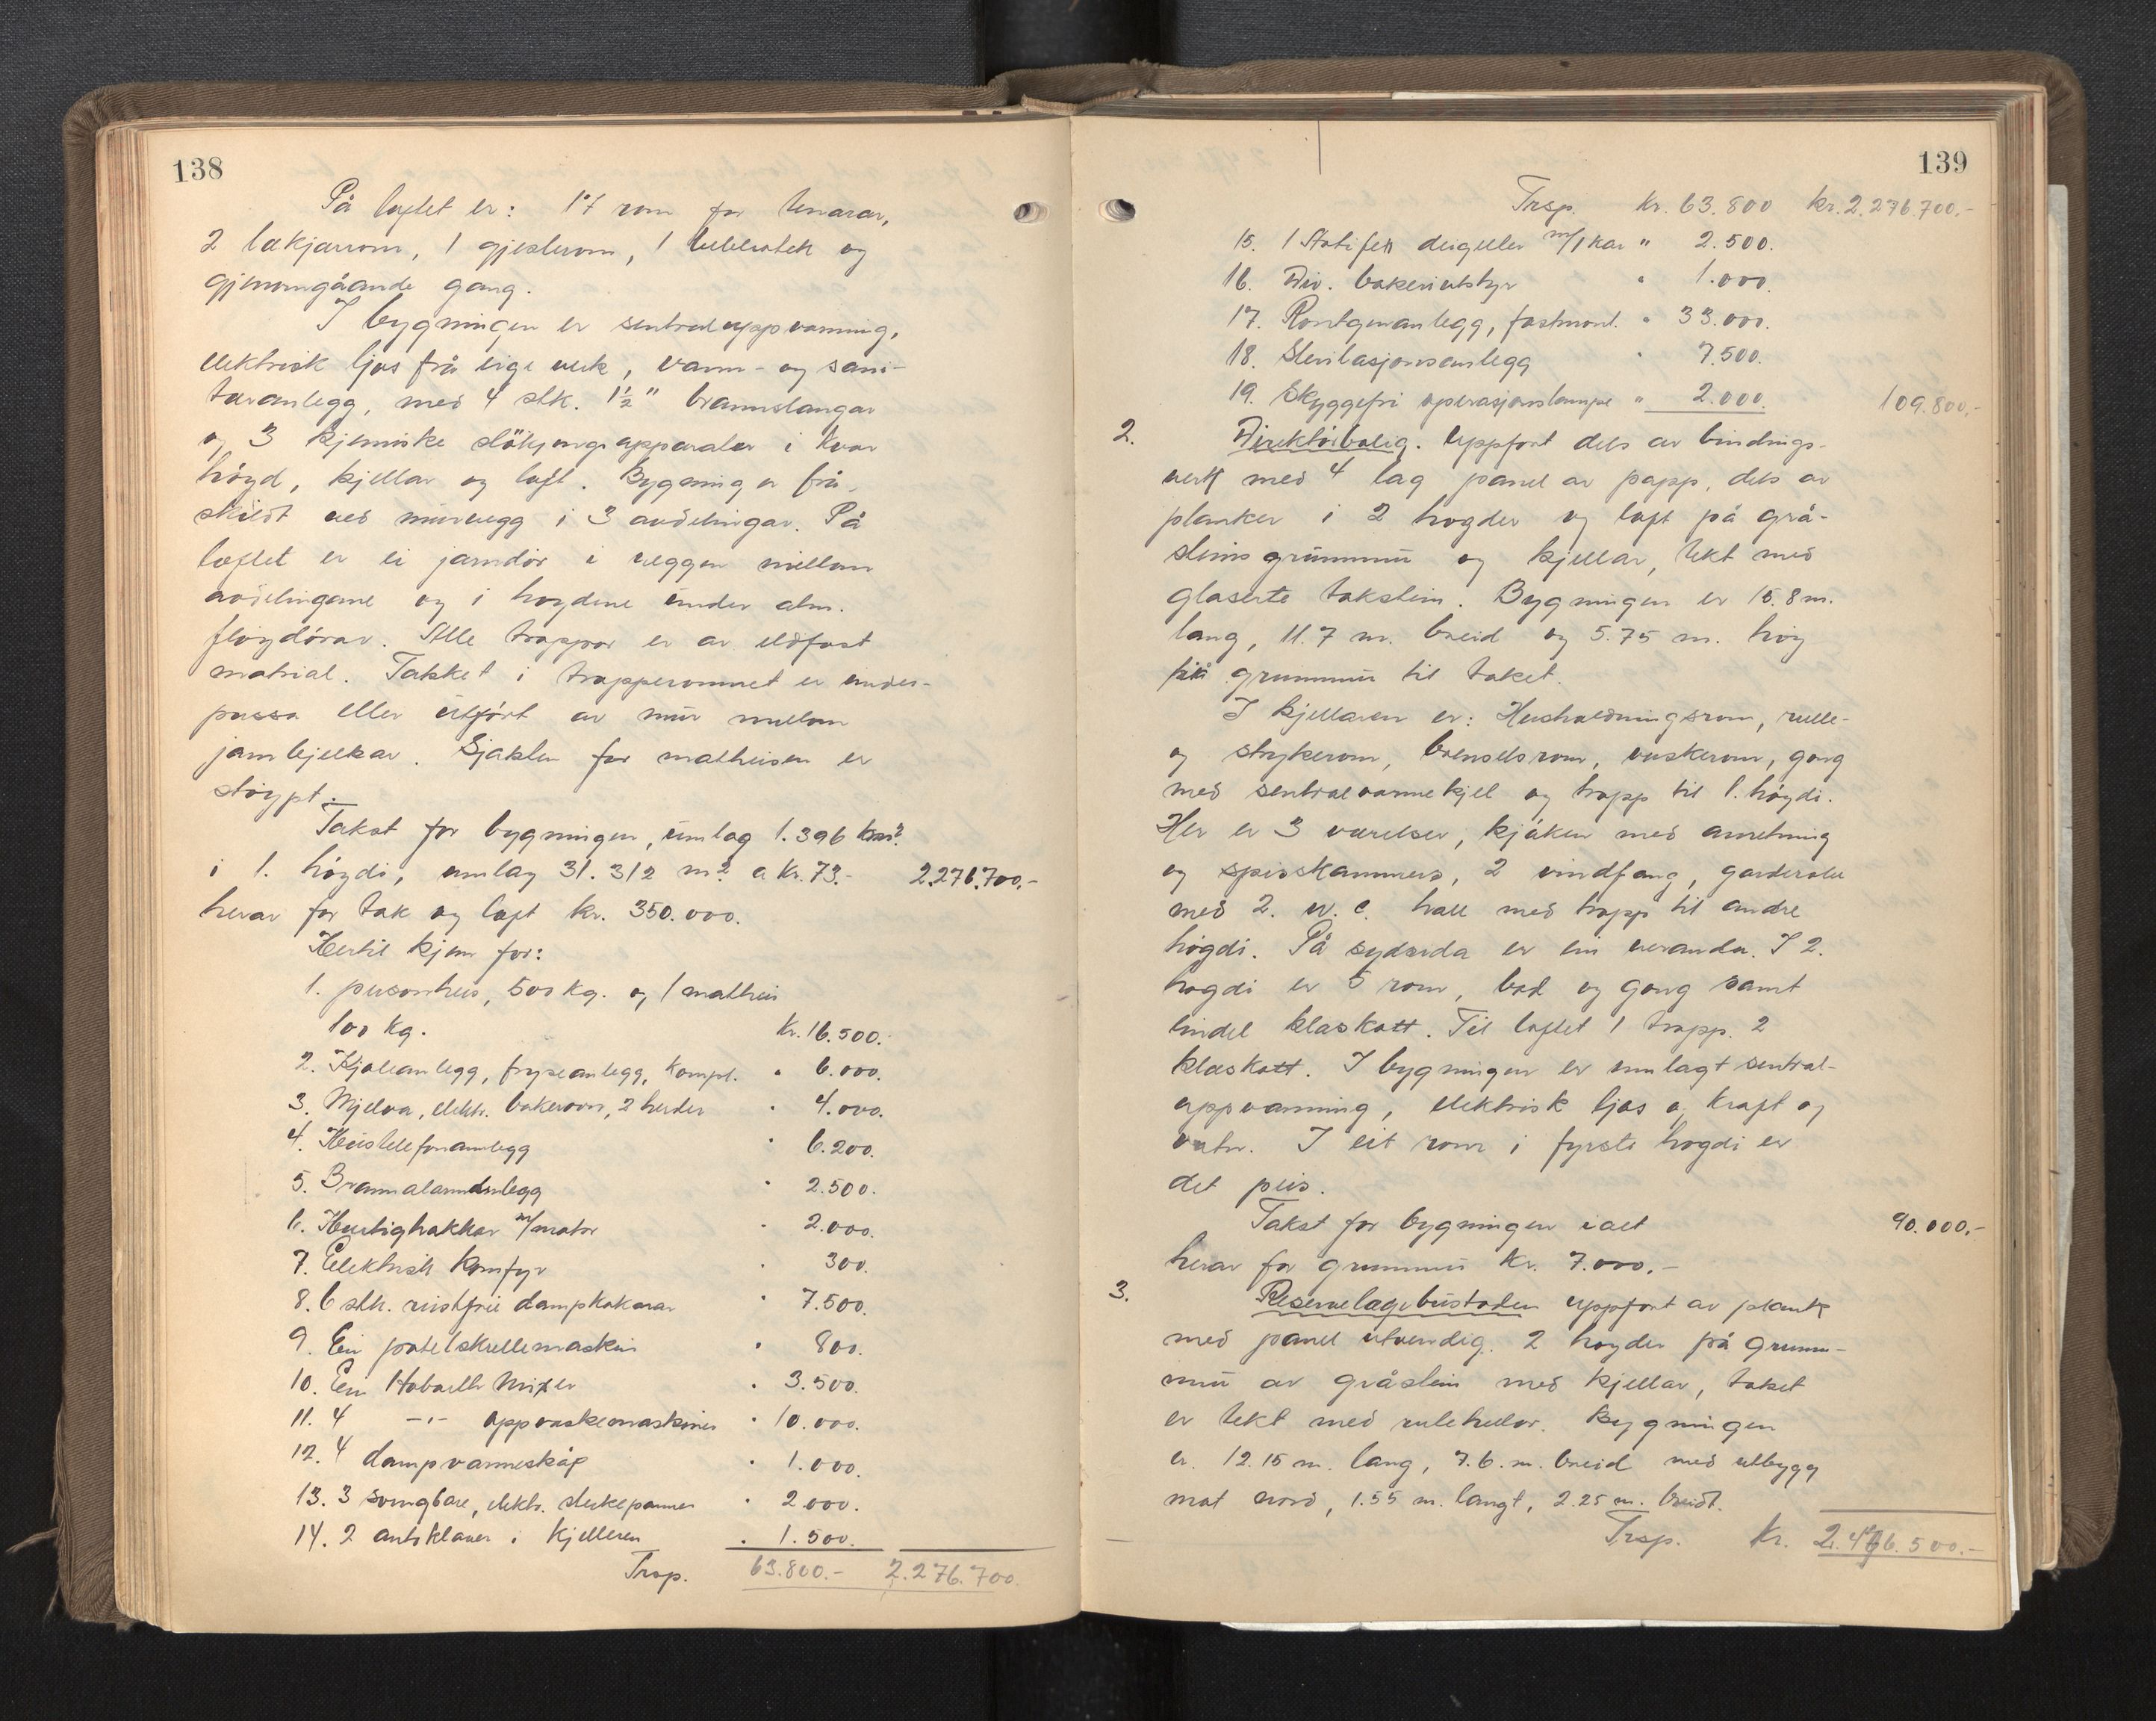 138
På loftet er: 17 rom for tenarar,
2 lækjarrom, 1 gjesterom, 1 bibliotek og
gjenomgåande gang.
I bygningen er sentraloppvarming,
elektrisk ljos frå eige verk, vann- og sani-
tæranlegg, med 4 stk. 1½" brannslangar
og 3 kjemiske slökjingsapparater i kvar
högd, kjellar og loft. Bygning er frå-
skildt ved murvegg i 3 avdelingar. På
loftet er ei jarndör i veggen mellom
avdelingane og i høgdene under alm.
flöydörar. Alle trappor er av eldfast
matrial. Takket i trapperommet er under-
pussa eller utfört av mur mellom
jarnbjelkar. Sjakten for matheisen er
stöypt.
Takst for bygningen, umlag 1.396 m²
i 1. högdi, umlag 31.312 m² a kr. 73.- 2.276.700.-
herav for tak og loft kr. 350.000.
Hertil kjem for:
1. personheis, 500 kg. og 1 matheis
100 kg. kr. 16.500.-
2. Kjøleanlegg, fryseanlegg, kompl. " 6.000.
3. Mjelva, elektr. bakerovn, 2 herder " 4.000.
4. Hustelefonanlegg " 6.200.
5. Brannalarmanlegg " 2.500.
6. Hurtighakkar m/motor " 2.000.
7. Elektrisk komfyr " 300.
8. 6 stk. rustfrie dampkokarar " 7.500.
9. Ein potetskrellemaskin " 800.
10. Ein Hobarth Mixer " 3.500.
11. 4 -"- oppvaskemaskiner " 10.000.
12. 4 dampvarmeskåp " 1.000.
13. 3 svingbare, elektr. steikepanner " 2.000.
14. 2 autoklaver i kjelleren " 1.500.
Trsp. 63.800.- 2.276.700.
139
Trsp. kr. 63.800 kr. 2.276.700.-
15. 1 deigeller m/1 kar " 2.500.
16. Div. bakeriutstyr " 1.000.
17. Röntgenanlegg, fastmont. " 33.000.
18. Sterilasjonsanlegg " 7.500.
19. Skyggefri operasjonslampe " 2.000. 109.800.-
2. Direktörbolig. Uppfört dels av bindings-
verk med 4 lag panel av papp, dels av
planker i 2 hogder og loft på grå-
steins grunnmur og kjellar, tekt med
glaserte takstein. Bygningen er 15.8 m.
lang, 11.7 m. breid og 5.75 m. höy
frå grunnmur til taket.
I kjellaren er: Husholdningsrom, rulle-
og strykerom, brenselsrom, vaskerom, gang
med sentralvarmekjel og trapp til 1. högdi.
Her er 3 værelser, kjöken med anretning
og spisskammers, 2 vindfang, garderobe
med 2. w.c. hall med trapp til andre
högdi. På sydsida er ein veranda. I 2.
hogdi er 5 rom, bad og gang samt
eindel kleskott. Til loftet 1 trapp. 2
kleskott. I bygningen er innlagt sentral-
oppvarming, elektrisk ljos og kraft og
vatn. I eit rom i fyrste hogdi er
det peis.
Takst for bygningen i alt 90.000.-
herav for grunnmur kr. 7.000.-
3. Reservelegebustaden uppfört av plank
med panel utvendig. 2 hogder på grunn-
mur av gråstein med kjellar, taket
er tekt med rutehellor. Bygningen
er 12.15 m. lang, 7.6. m. breid med utbygg
mot nord, 1.55 m. langt, 2.25 m. breidt.
Trsp. kr. 2.476.500.-